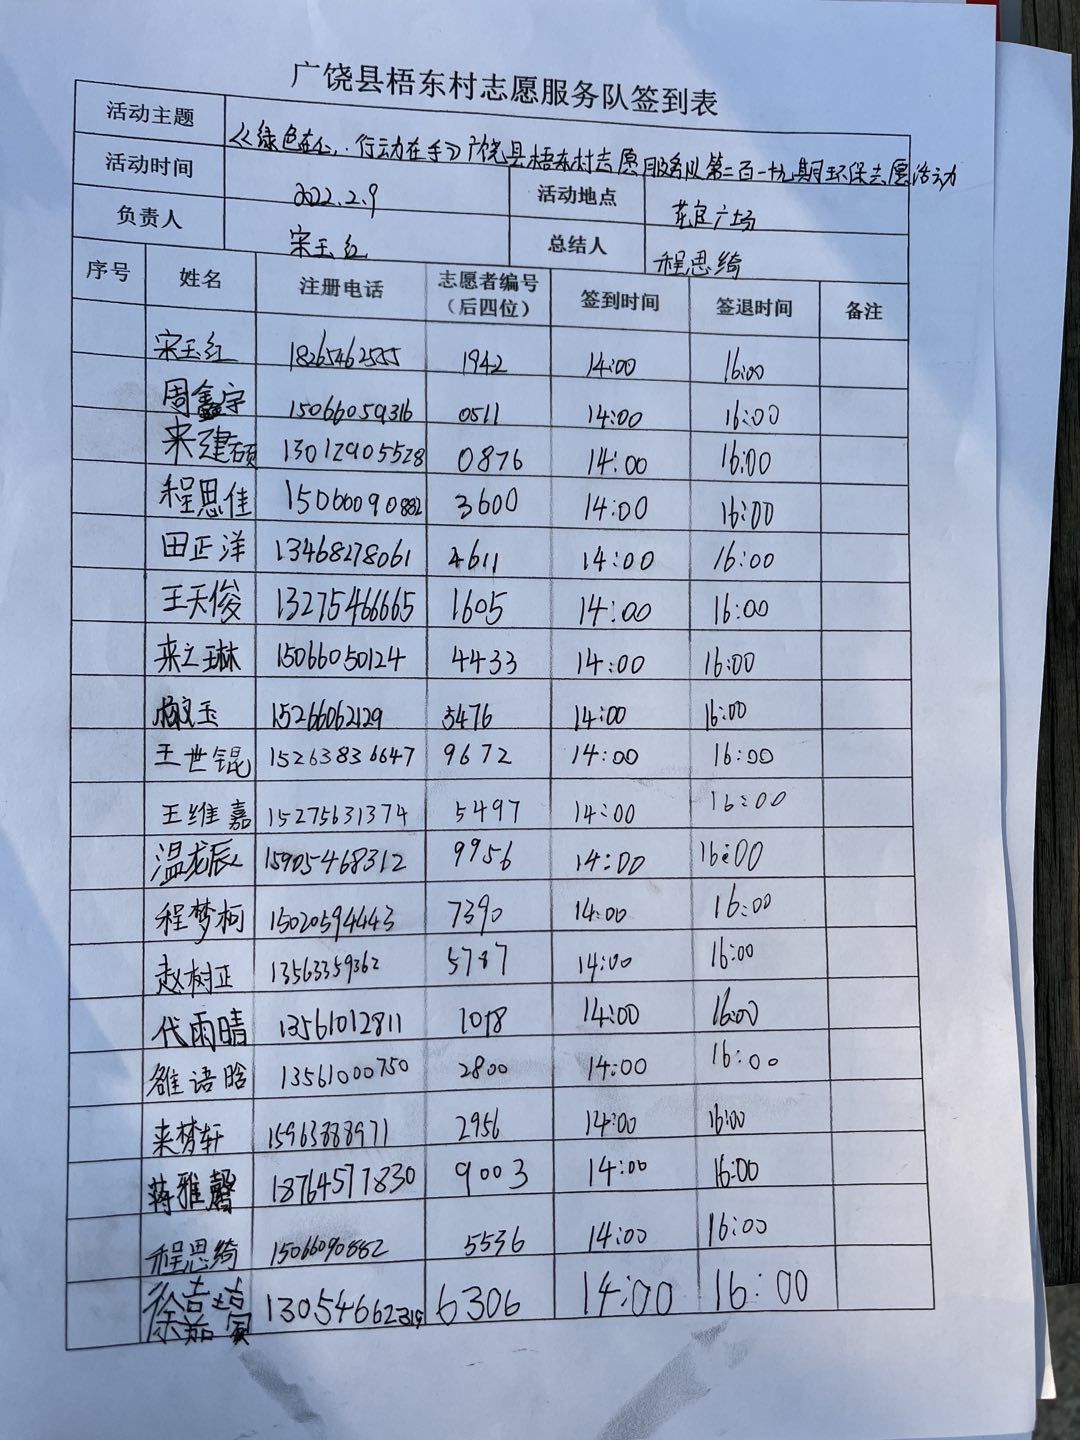 广饶县梧东村志愿服务队签到表
活动主题 《绿色在心,行动在手》广饶县梧东村志愿服务队第二百一十九期环保志愿活动
活动时间 2022.2.9 活动地点 花官广场
负责人 宋玉红 总结人 程思绮
序号 姓名 注册电话 志愿者编号(后四位) 签到时间 签退时间 备注
宋玉红 18265462555 1942 14:00 16:00
周鑫宇 15066059316 0511 14:00 16:00
来建硕 13012905528 0876 14:00 16:00
程思佳 15066090882 3600 14:00 16:00
田正洋 13468278061 4611 14:00 16:00
王天俊 13275466665 1605 14:00 16:00
来之琳 15066050124 4433 14:00 16:00
玉 15266062129 3476 14:00 16:00
王世锟 15263836647 9672 14:00 16:00
王维嘉 15275631374 5497 14:00 16:00
温龙辰 15905468312 9956 14:00 16:00
程梦柯 15020594443 7390 14:00 16:00
赵树正 13563359362 5787 14:00 16:00
代雨晴 13561012811 1018 14:00 16:00
雒语晗 13561000750 2800 14:00 16:00
来梦轩 15963888971 2956 14:00 16:00
蒋雅馨 18764577830 9003 14:00 16:00
程思绮 15066090882 5536 14:00 16:00
徐嘉 6306 14:00 16:00